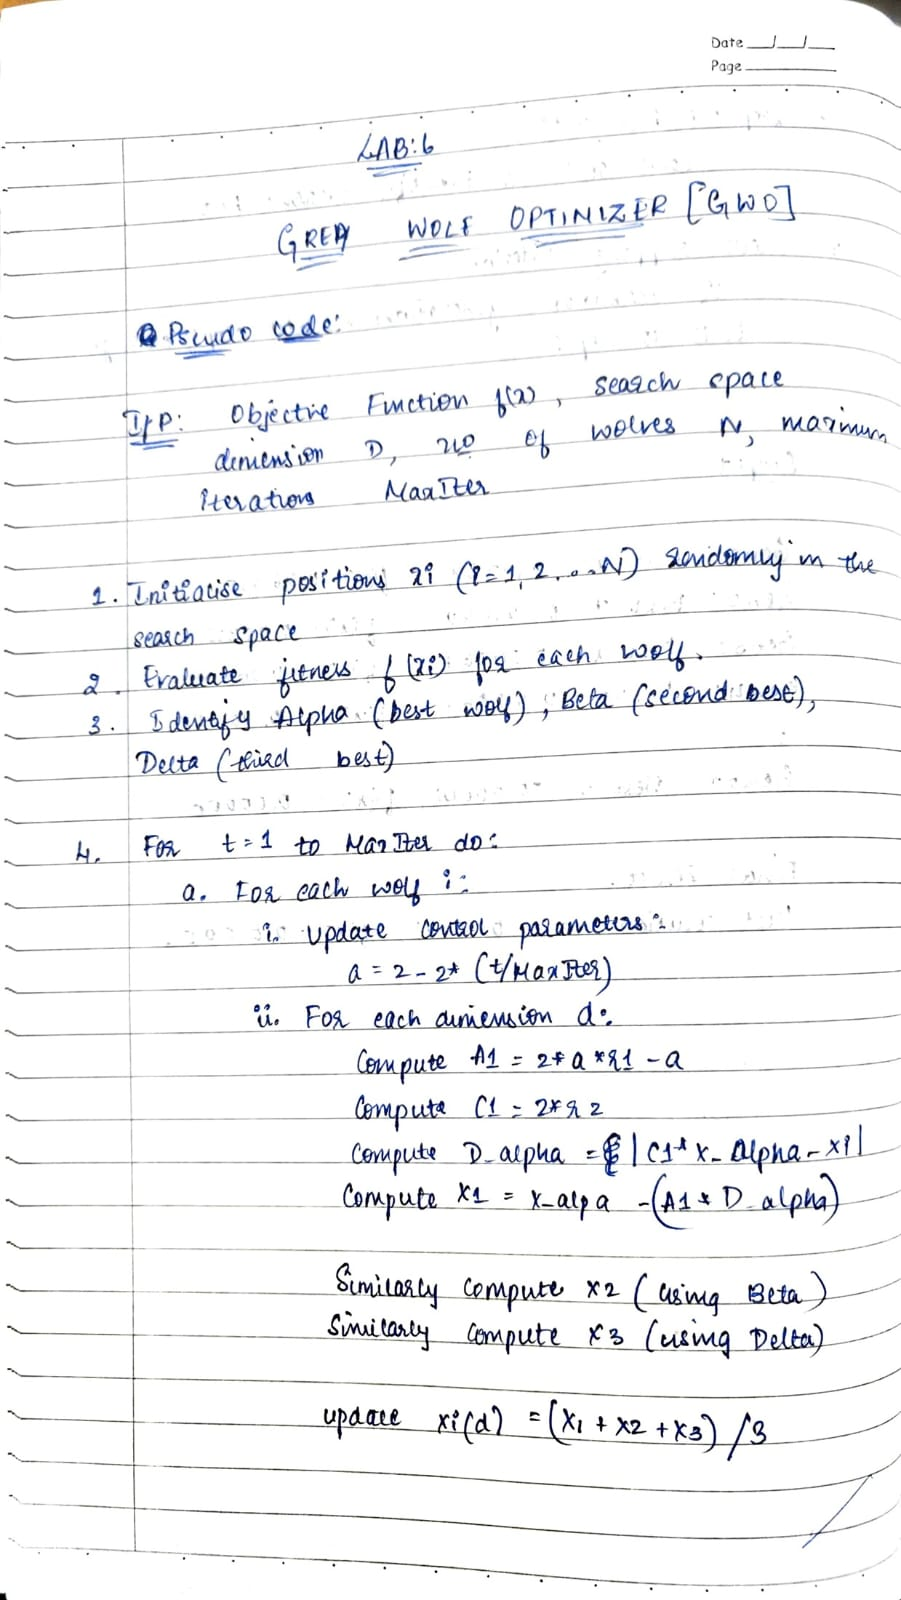 Date __/__/__
Page ______
LAB:6
GREY WOLF OPTINIZER [GWO]
Pseudo code:
I/P: Objective Function f(x), search space
dimension D, no of wolves N, maximum
iterations MaxIter
1. Initialise positions xi (i=1, 2, ...N) randomly in the
search space
2. Evaluate fitness f(xi) for each wolf.
3. Identify Alpha (best wolf), Beta (second best),
Delta (third best)
4. For t=1 to MaxIter do:
a. For each wolf i:
i. update control parameters:
a = 2-2* (t/MaxIter)
ii. For each dimension d:
Compute A1 = 2*a*r1 - a
Compute C1 = 2*r2
Compute D_alpha = |C1* X_Alpha-xi|
Compute X1 = X_alpa -(A1* D_alpha)
Similarly compute x2 (using Beta)
Similarly compute x3 (using Delta)
update xi(d) = (x1 + x2 + x3) /3